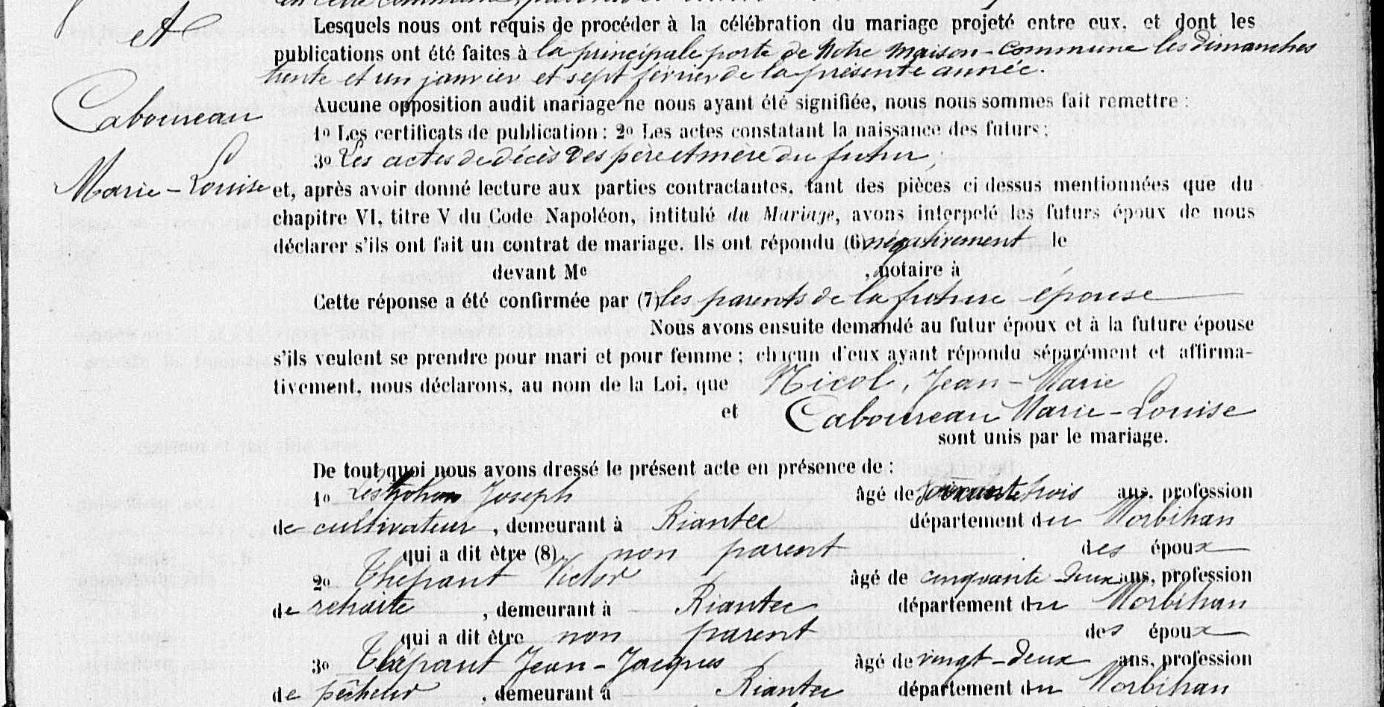 et
Caboureau
Marie-Louise
en cette commune,
Lesquels nous ont requis de procéder à la célébration du mariage projeté entre eux, et dont les
publications ont été faites à la principale porte de Notre maison-commune les dimanches
trente et un janvier et sept février de la présente année.
Aucune opposition audit mariage ne nous ayant été signifiée, nous nous sommes fait remettre :
1o Les certificats de publication ; 2o Les actes constatant la naissance des futurs ;
3o Les actes de décès des père et mère du futur ;
et, après avoir donné lecture aux parties contractantes, tant des pièces ci dessus mentionnées que du
chapitre VI, titre V du Code Napoléon, intitulé du Mariage, avons interpelé les futurs époux de nous
déclarer s'ils ont fait un contrat de mariage. Ils ont répondu (6) négativement le
devant Me , notaire à
Cette réponse a été confirmée par (7) les parents de la future épouse
Nous avons ensuite demandé au futur époux et à la future épouse
s'ils veulent se prendre pour mari et pour femme ; chacun d'eux ayant répondu séparément et affirma-
tivement, nous déclarons, au nom de la Loi, que Nicol, Jean-Marie
et Caboureau Marie-Louise
sont unis par le mariage.
De tout quoi nous avons dressé le présent acte en présence de :
1o Joseph âgé de ans, profession
de cultivateur , demeurant à Riantec département du Morbihan
qui a dit être (8) non parent des époux
2o Thépant Victor âgé de cinquante-deux ans, profession
de retraité , demeurant à Riantec département du Morbihan
qui a dit être non parent des époux
3o Thépant Jean-Jacques âgé de vingt-deux ans, profession
de pêcheur , demeurant à Riantec département du Morbihan